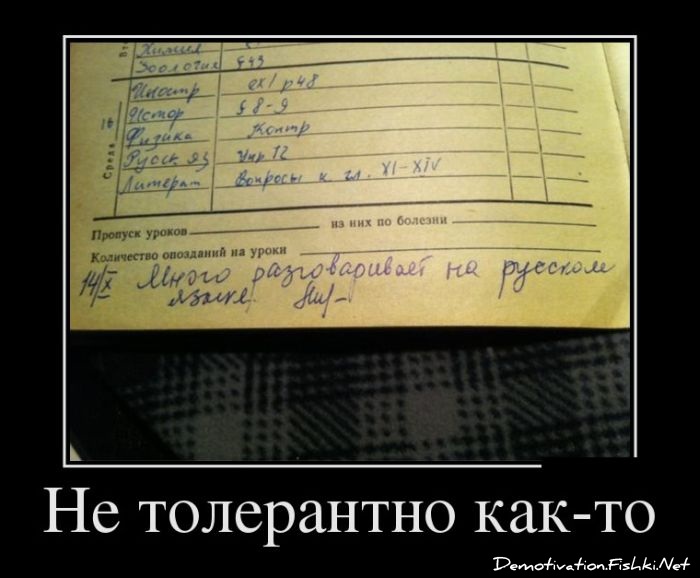 Вт
Химия
Зоология §43
Иностр ex1 p48
Истор § 8-9
Физика Контр
Русск яз Упр 12
Литерат Вопросы к гл. XI-XIV
Среда 16
Пропуск уроков из них по болезни
Количество опозданий на уроки
14/X Много разговаривает на русском
языке
Не толерантно как-то
Demotivation.Fishki.Net